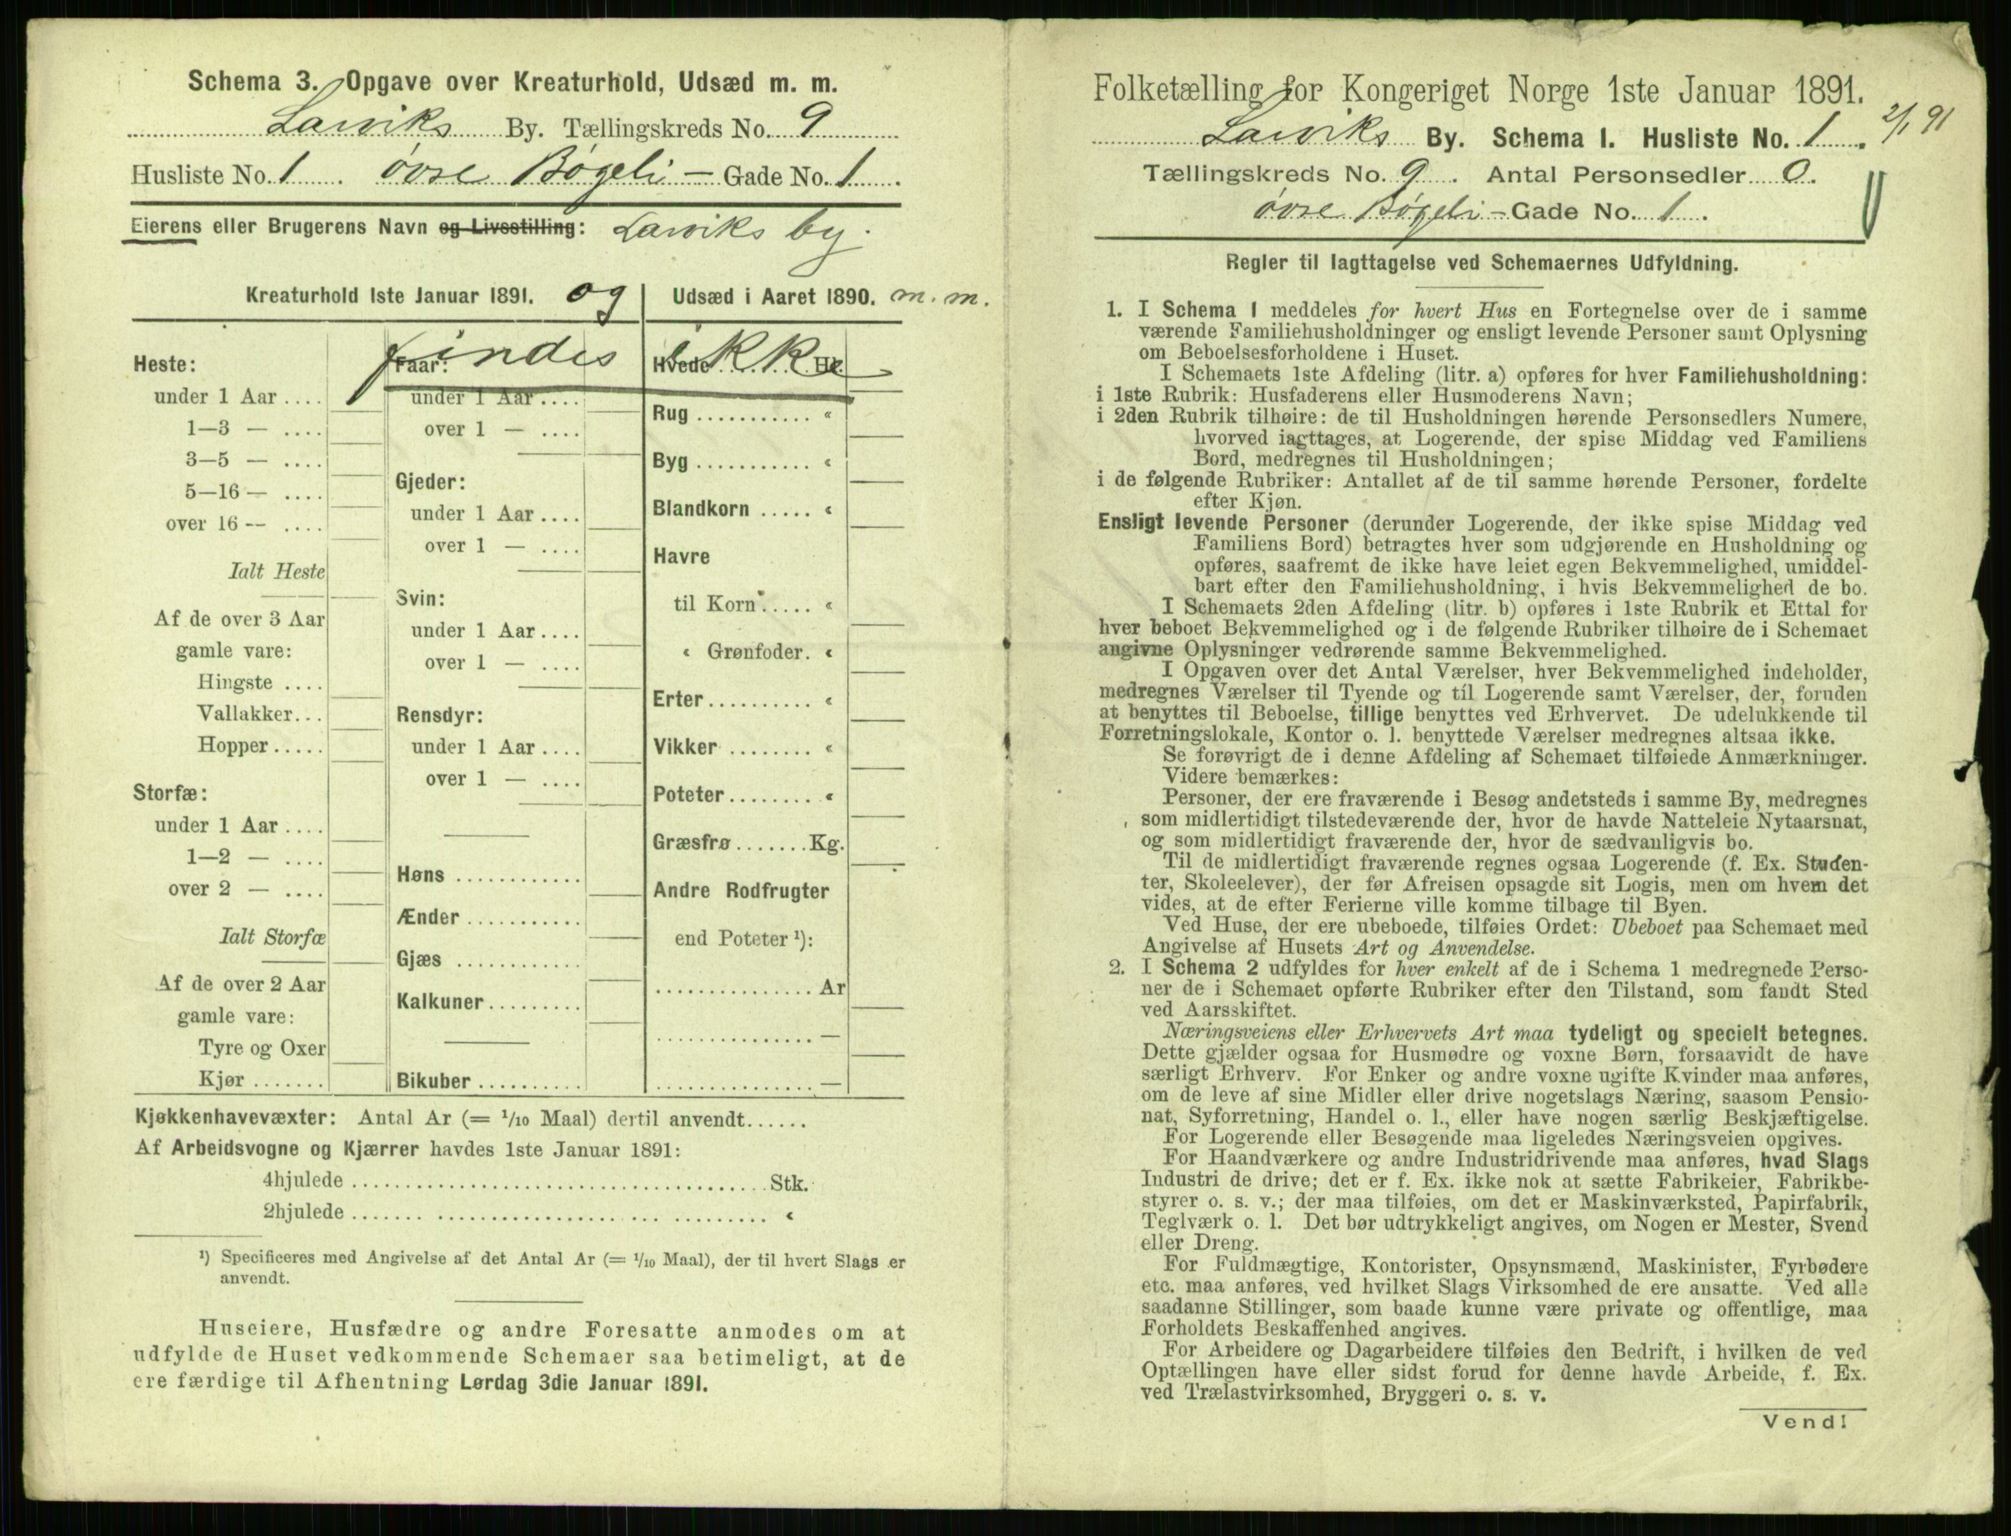 Schema 3. Opgave over Kreaturhold, Udsæd m. m.
Larviks By. Tællingskreds No. 9
Husliste No. 1. Øvre Bøgeli - Gade No. 1.
Eierens eller Brugerens Navn og Livsstilling: Larviks by.
Kreaturhold 1ste Januar 1891. og
findes
Heste:
under 1 Aar....
1—3 — ....
3—5 — ....
5—16 — ....
over 16 — ....
Ialt Heste
Af de over 3 Aar
gamle vare:
Hingste ....
Vallakker...
Hopper.....
Storfæ:
under 1 Aar....
1—2 — ....
over 2 — ....
Ialt Storfæ
Af de over 2 Aar
gamle vare:
Tyre og Oxer
Kjør.......
Faar:
under 1 Aar....
over 1 — ....
Gjeder:
under 1 Aar....
over 1 — ....
Svin:
under 1 Aar....
over 1 — ....
Rensdyr:
under 1 Aar....
over 1 — ....
Høns............
Ænder...........
Gjæs............
Kalkuner.........
Bikuber..........
Udsæd i Aaret 1890. m. m.
ikke
Hvede........ Hl.
Rug........... «
Byg........... «
Blandkorn..... «
Havre
til Korn..... «
« Grønfoder. «
Erter.......... «
Vikker........ «
Poteter........ «
Græsfrø.......Kg.
Andre Rodfrugter
end Poteter ¹):
............... Ar
............... —
............... —
Kjøkkenhavevæxter: Antal Ar (= 1/10 Maal) dertil anvendt......
Af Arbeidsvogne og Kjærrer havdes 1ste Januar 1891:
4hjulede......................................Stk.
2hjulede....... ................... ... ......... «
¹) Specificeres med Angivelse af det Antal Ar (= 1/10 Maal), der til hvert Slags er
anvendt.
Huseiere, Husfædre og andre Foresatte anmodes om at
udfylde de Huset vedkommende Schemaer saa betimeligt, at de
ere færdige til Afhentning Lørdag 3die Januar 1891.
Folketælling for Kongeriget Norge 1ste Januar 1891.
2/1 91
Larviks By. Schema 1. Husliste No. 1.
Tællingskreds No. 9. Antal Personsedler 0.
Øvre Bøgeli - Gade No. 1.
Regler til Iagttagelse ved Schemaernes Udfyldning.
1. I Schema 1 meddeles for hvert Hus en Fortegnelse over de i samme
værende Familiehusholdninger og ensligt levende Personer samt Oplysning
om Beboelsesforholdene i Huset.
I Schemaets 1ste Afdeling (litr. a) opføres for hver Familiehusholdning:
i 1ste Rubrik: Husfaderens eller Husmoderens Navn;
i 2den Rubrik tilhøire: de til Husholdningen hørende Personsedlers Numere,
hvorved iagttages, at Logerende, der spise Middag ved Familiens
Bord, medregnes til Husholdningen;
i de følgende Rubriker: Antallet af de til samme hørende Personer, fordelte
efter Kjøn.
Ensligt levende Personer (derunder Logerende, der ikke spise Middag ved
Familiens Bord) betragtes hver som udgjørende en Husholdning og
opføres, saafremt de ikke have leiet egen Bekvemmelighed, umiddel-
bart efter den Familiehusholdning, i hvis Bekvemmelighed de bo.
I Schemaets 2den Afdeling (litr. b) opføres i 1ste Rubrik et Ettal for
hver beboet Bekvemmelighed og i de følgende Rubriker tilhøire de i Schemaet
angivne Oplysninger vedrørende samme Bekvemmelighed.
I Opgaven over det Antal Værelser, hver Bekvemmelighed indeholder,
medregnes Værelser til Tyende og til Logerende samt Værelser, der, foruden
at benyttes til Beboelse, tillige benyttes ved Erhvervet. De udelukkende til
Forretningslokale, Kontor o. l. benyttede Værelser medregnes altsaa ikke.
Se forøvrigt de i denne Afdeling af Schemaet tilføiede Anmærkninger.
Videre bemærkes:
Personer, der ere fraværende i Besøg andetsteds i samme By, medregnes
som midlertidigt tilstedeværende der, hvor de havde Natteleie Nytaarsnat,
og som midlertidigt fraværende der, hvor de sædvanligvis bo.
Til de midlertidigt fraværende regnes ogsaa Logerende (f. Ex. Studen-
ter, Skoleelever), der før Afreisen opsagde sit Logis, men om hvem det
vides, at de efter Ferierne ville komme tilbage til Byen.
Ved Huse, der ere ubeboede, tilføies Ordet: Ubeboet paa Schemaet med
Angivelse af Husets Art og Anvendelse.
2. I Schema 2 udfyldes for hver enkelt af de i Schema 1 medregnede Perso-
ner de i Schemaet opførte Rubriker efter den Tilstand, som fandt Sted
ved Aarsskiftet.
Næringsveiens eller Erhvervets Art maa tydeligt og specielt betegnes.
Dette gjælder ogsaa for Husmødre og voxne Børn, forsaavidt de have
særligt Erhverv. For Enker og andre voxne ugifte Kvinder maa anføres,
om de leve af sine Midler eller drive nogetslags Næring, saasom Pensio-
nat, Syforretning, Handel o. l., eller have nogen særlig Beskjæftigelse.
For Logerende eller Besøgende maa ligeledes Næringsveien opgives.
For Haandværkere og andre Industridrivende maa anføres, hvad Slags
Industri de drive; det er f. Ex. ikke nok at sætte Fabrikeier, Fabrikbe-
styrer o. s. v.; der maa tilføies, om det er Maskinværksted, Papirfabrik,
Teglværk o. l. Det bør udtrykkeligt angives, om Nogen er Mester, Svend
eller Dreng.
For Fuldmægtige, Kontorister, Opsynsmænd, Maskinister, Fyrbødere
etc. maa anføres, ved hvilket Slags Virksomhed de ere ansatte. Ved alle
saadanne Stillinger, som baade kunne være private og offentlige, maa
Forholdets Beskaffenhed angives.
For Arbeidere og Dagarbeidere tilføies den Bedrift, i hvilken de ved
Optællingen have eller sidst forud for denne havde Arbeide, f. Ex.
ved Trælastvirksomhed, Bryggeri o. s. v.
Vend!